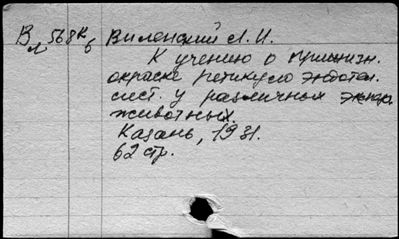 Виленский Л. И.
К учению о прижизн.
окраске ретикуло эндотел.
сист. у различных экспер.
животных.
Казань, 1931.
62 стр.